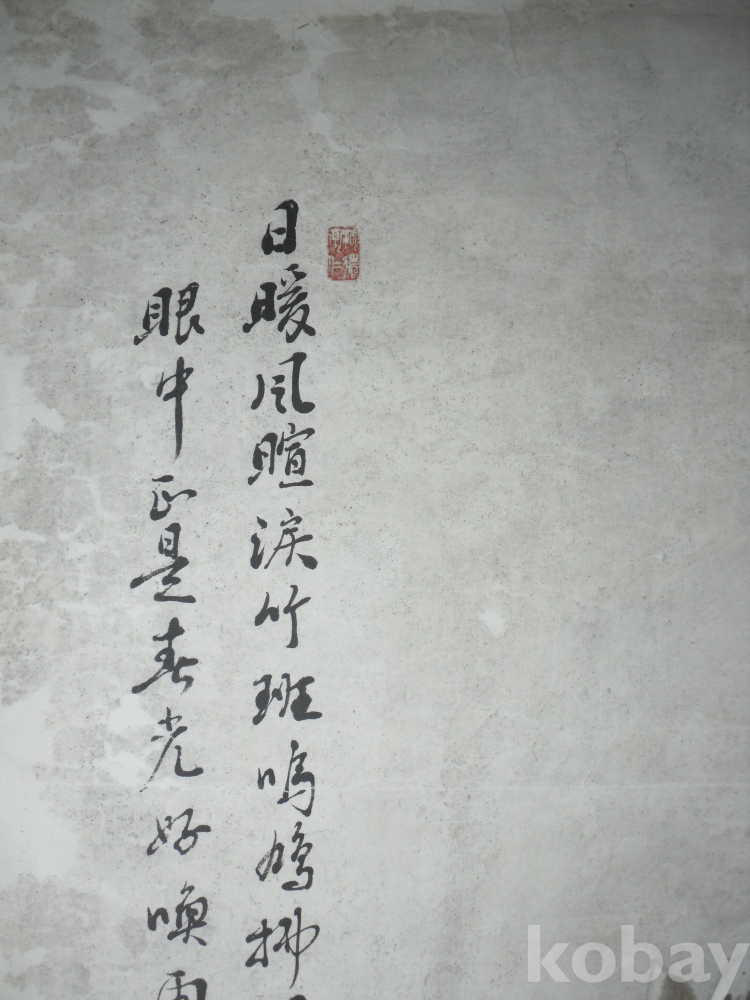 日暖風暄淚竹班鳴鳩拂
眼中正是春光好喚
kobay